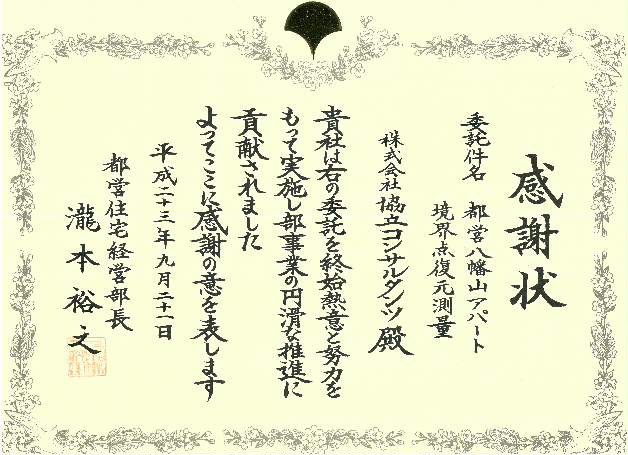 感謝状
委託件名 都営八幡山アパート
境界点復元測量
株式会社 協立コンサルタンツ 殿
貴社は右の委託を終始熱意と努力を
もって実施し部事業の円滑な推進に
貢献されました
よってここに感謝の意を表します
平成二十三年九月二十一日
都営住宅経営部長
瀧本裕之